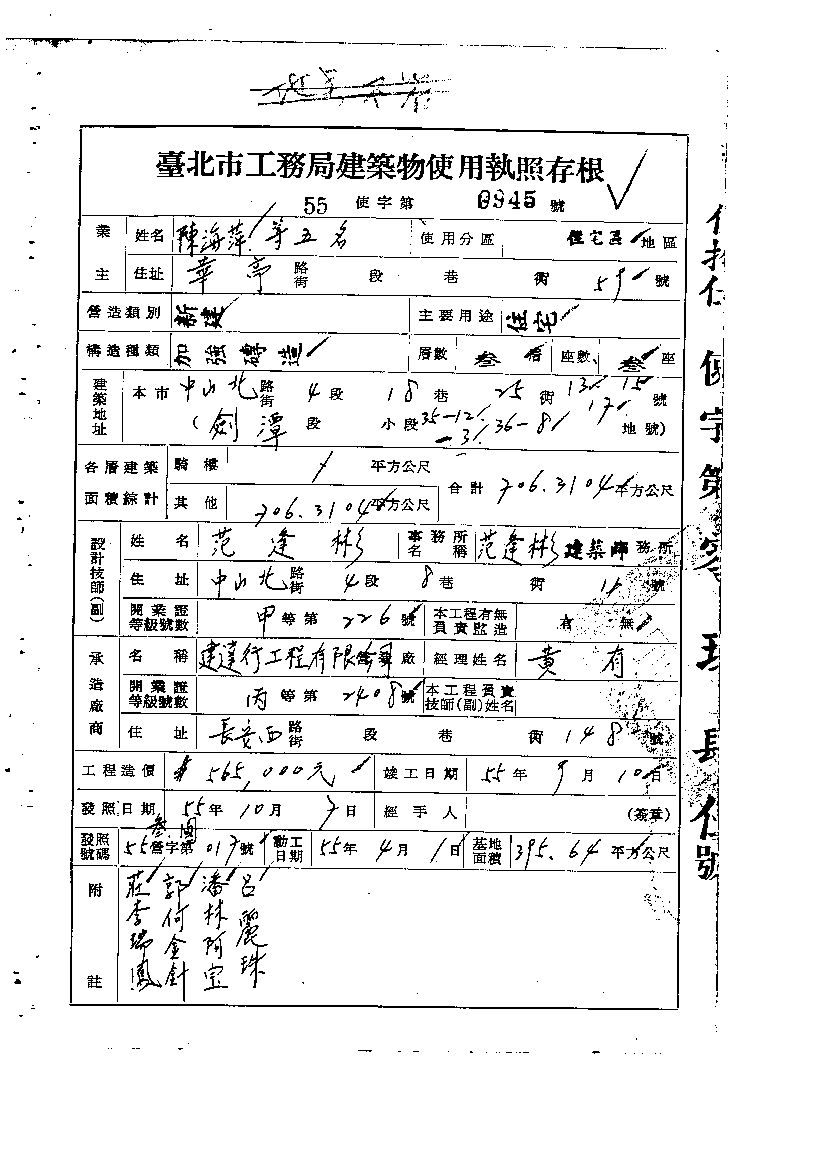 臺北市工務局建築物使用執照存根
55 使字第 0945 號
業主 姓名 陳海萍等五名 使用分區 住宅區 地區
住址 華亭 路街 段 巷 街 59 號
營造類別 新建 主要用途 住宅
構造種類 加強磚造 層數 叁層 座數 叁座
建築地址 本市 中山北 路街 4段 18巷 25街 13 15 號
17
(劍潭段 小段 35-12 -3 36-8 地號)
各層建築面積綜計 騎樓 平方公尺 合計 706.3104 平方公尺
其他 706.3104 平方公尺
設計技師(副) 姓名 范逢彬 事務所名稱 范逢彬建築師事務所
住址 中山北 路街 4段 8巷 街 號
開業證等級號數 甲等第226號 本工程有無負責監造 有 無
承造廠商 名稱 建達行工程有限公司 廠 經理姓名 黃有
開業證等級號數 丙等第2408號 本工程負責技師(副)姓名
住址 長安西 路街 段 巷 街 148 號
工程造價 $565,000元 竣工日期 55年9月10日
發照日期 55年10月7日 經手人 (簽章)
發照號碼 55營字第017號 動工日期 55年4月1日 基地面積 395.64 平方公尺
附註
呂麗珠
潘林阿宝
郭何金針
莊李瑞鳳